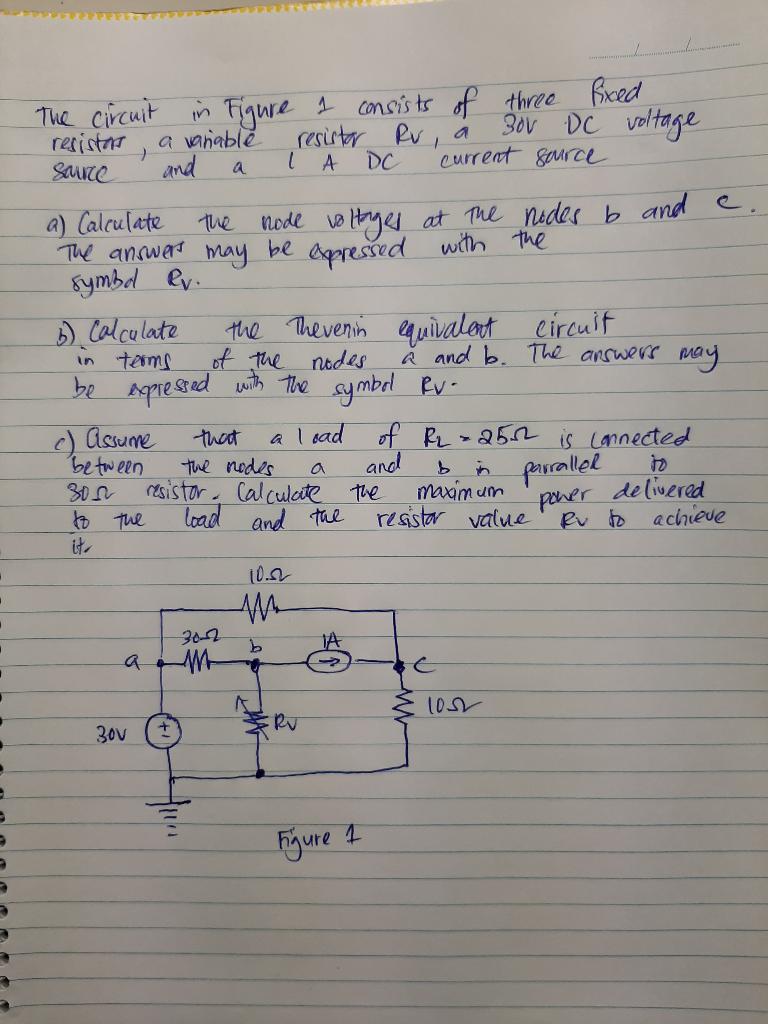 The circuit in Figure 1 consists of three fixed
resistors, a variable resistor Rv, a 30V DC voltage
source and a 1 A DC current source
a) Calculate the node voltages at the nodes b and c.
The answers may be expressed with the
symbol Rv.
b) Calculate the Thevenin equivalent circuit
in terms of the nodes a and b. The answers may
be expressed with the symbol Rv.
c) Assume that a load of RL = 25Ω is connected
between the nodes a and b in parrallel to
30Ω resistor. Calculate the maximum power delivered
to the load and the resistor value Rv to achieve
it.
10Ω
30Ω b 1A
a c
10Ω
30V Rv
Figure 1